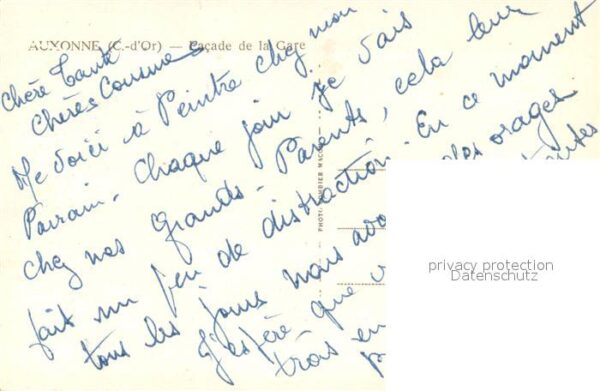 AUXONNE (C.-d'Or) — Façade de la Gare
Chère Tante
Chères Cousines
Me voici à Peintre chez mon
Parrain. Chaque jour je vais
chez nos Grands-Parents, cela leur
fait un peu de distraction. En ce moment
tous les jours nous avo
des orages
J'espère que v
toutes
trois en
PHOTO COMBIER MACON
privacy protection
Datenschutz